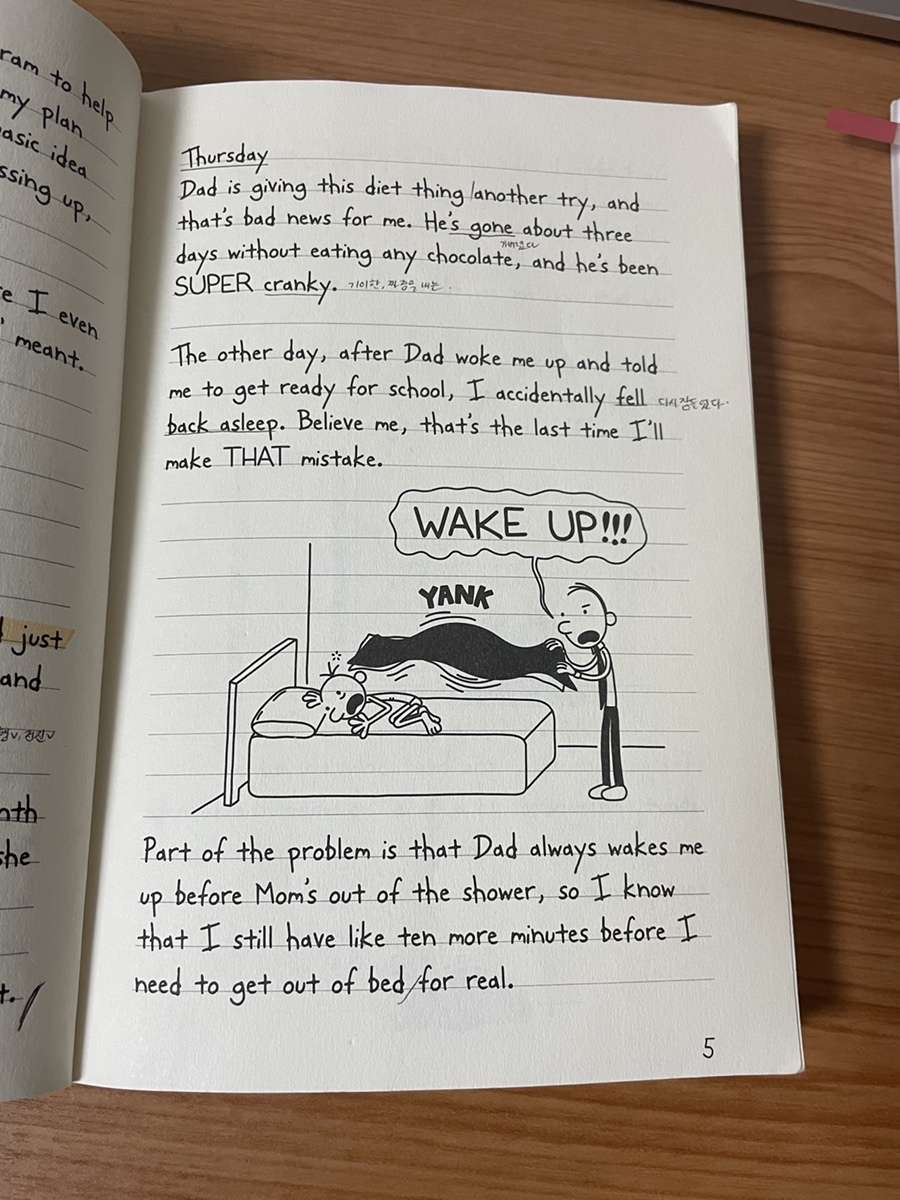 ram to help
my plan
asic idea
ssing up,
e I even
meant.
just
and
nth
she
t.
Thursday
Dad is giving this diet thing another try, and
that's bad news for me. He's gone about three
days without eating any chocolate, and he's been
SUPER cranky. 기이한, 짜증을 내는.
The other day, after Dad woke me up and told
me to get ready for school, I accidentally fell 다시 잠들었다.
back asleep. Believe me, that's the last time I'll
make THAT mistake.
WAKE UP!!!
YANK
Part of the problem is that Dad always wakes me
up before Mom's out of the shower, so I know
that I still have like ten more minutes before I
need to get out of bed for real.
5